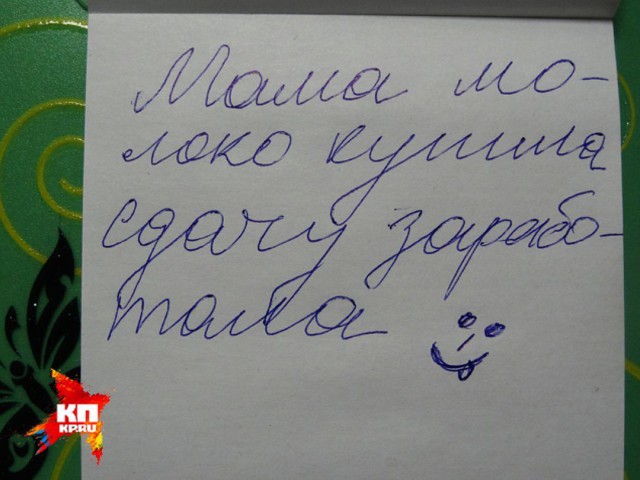 Мама мо-
локо купила
сдачу зарабо-
тала
КП
KP.RU